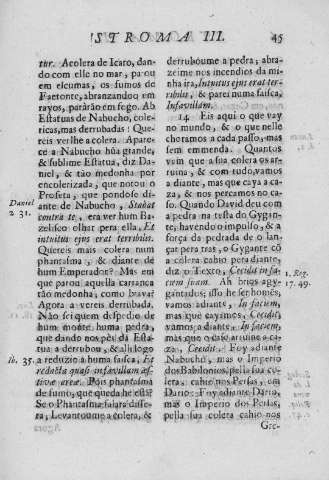 STROMA III. 45
tur. A colera de Icaro, dan-
do com elle no mar, parou
em escumas, os fumos de
Faetonte, abranzandoo em
rayos, pararaõ em fogo. Ab
Estatuas de Nabucho, cole-
ricas, mas derrubadas: Que-
reis verlhe a colera: Apare-
ce a Nabucho hũa grande,
& sublime Estatua, diz Da-
niel, & taõ medonha por
encolerizada, que notou o
Profeta, que pondose di-
Daniel
ante de Nabucho, Stabat
2 31.
contra te, era ver hum Ba-
zelisco olhar pera ella, Et
intuitus ejus erat terribilis.
Quereis mais colera num
phantasma, & diante de
hum Emperador? Mas em
que parou aquella carranca
taõ medonha, como brava?
Agora a vereis derrubada.
Naõ sei quem despedio de
hum monte huma pedra,
que dando nos pès da Esta-
tua a derrubou, & alli logo
ib. 35.
a reduzio a huma faisca, Et
redacta quasi in favillam æs-
tivæ areæ. Pois phantasma
de fumo, que queda he esta?
Se o Phantasma falara disse-
ra, Levantoume a colera, &
derruboume a pedra, abra-
zeime nos incendios da mi-
nha ira, Intuitus ejus erat ter-
ribilis, & parei numa faisca,
In favillam.
14. Eis aqui o que vay
no mundo, & o que nelle
choramos a cada passo, mas
sem emmenda. Quantos
vem que a sua colera os ar-
ruina, & com tudo, vamos
a diante, mas que caya a ca-
za, & nos percamos no ca-
so. Quando David deu com
a pedra na testa do Gygan-
te, havendo o impulso, & a
força da pedrada de o lan-
çar pera traz, o Gygante cõ
a colera cahio pera diante,
diz o Texto, Cecidit in fa-
1. Reg.
ciem suam. Ah brios agy-
17. 49.
gantados; isso he ser homẽs,
vamos adiante, In faciem,
mas que cayamos, Cecidit;
vamos adiante, In faciem,
mas que o caso arruine a ca-
za, Cecidit. Foy adiante
Nabucho, mas o Imperio
dos Babilonios, pella sua co-
lera, cahio nos Persas, em
Dario: Foy adiante Dario,
mas o Imperio dos Persas,
pella sua colera cahio nos
Gre-